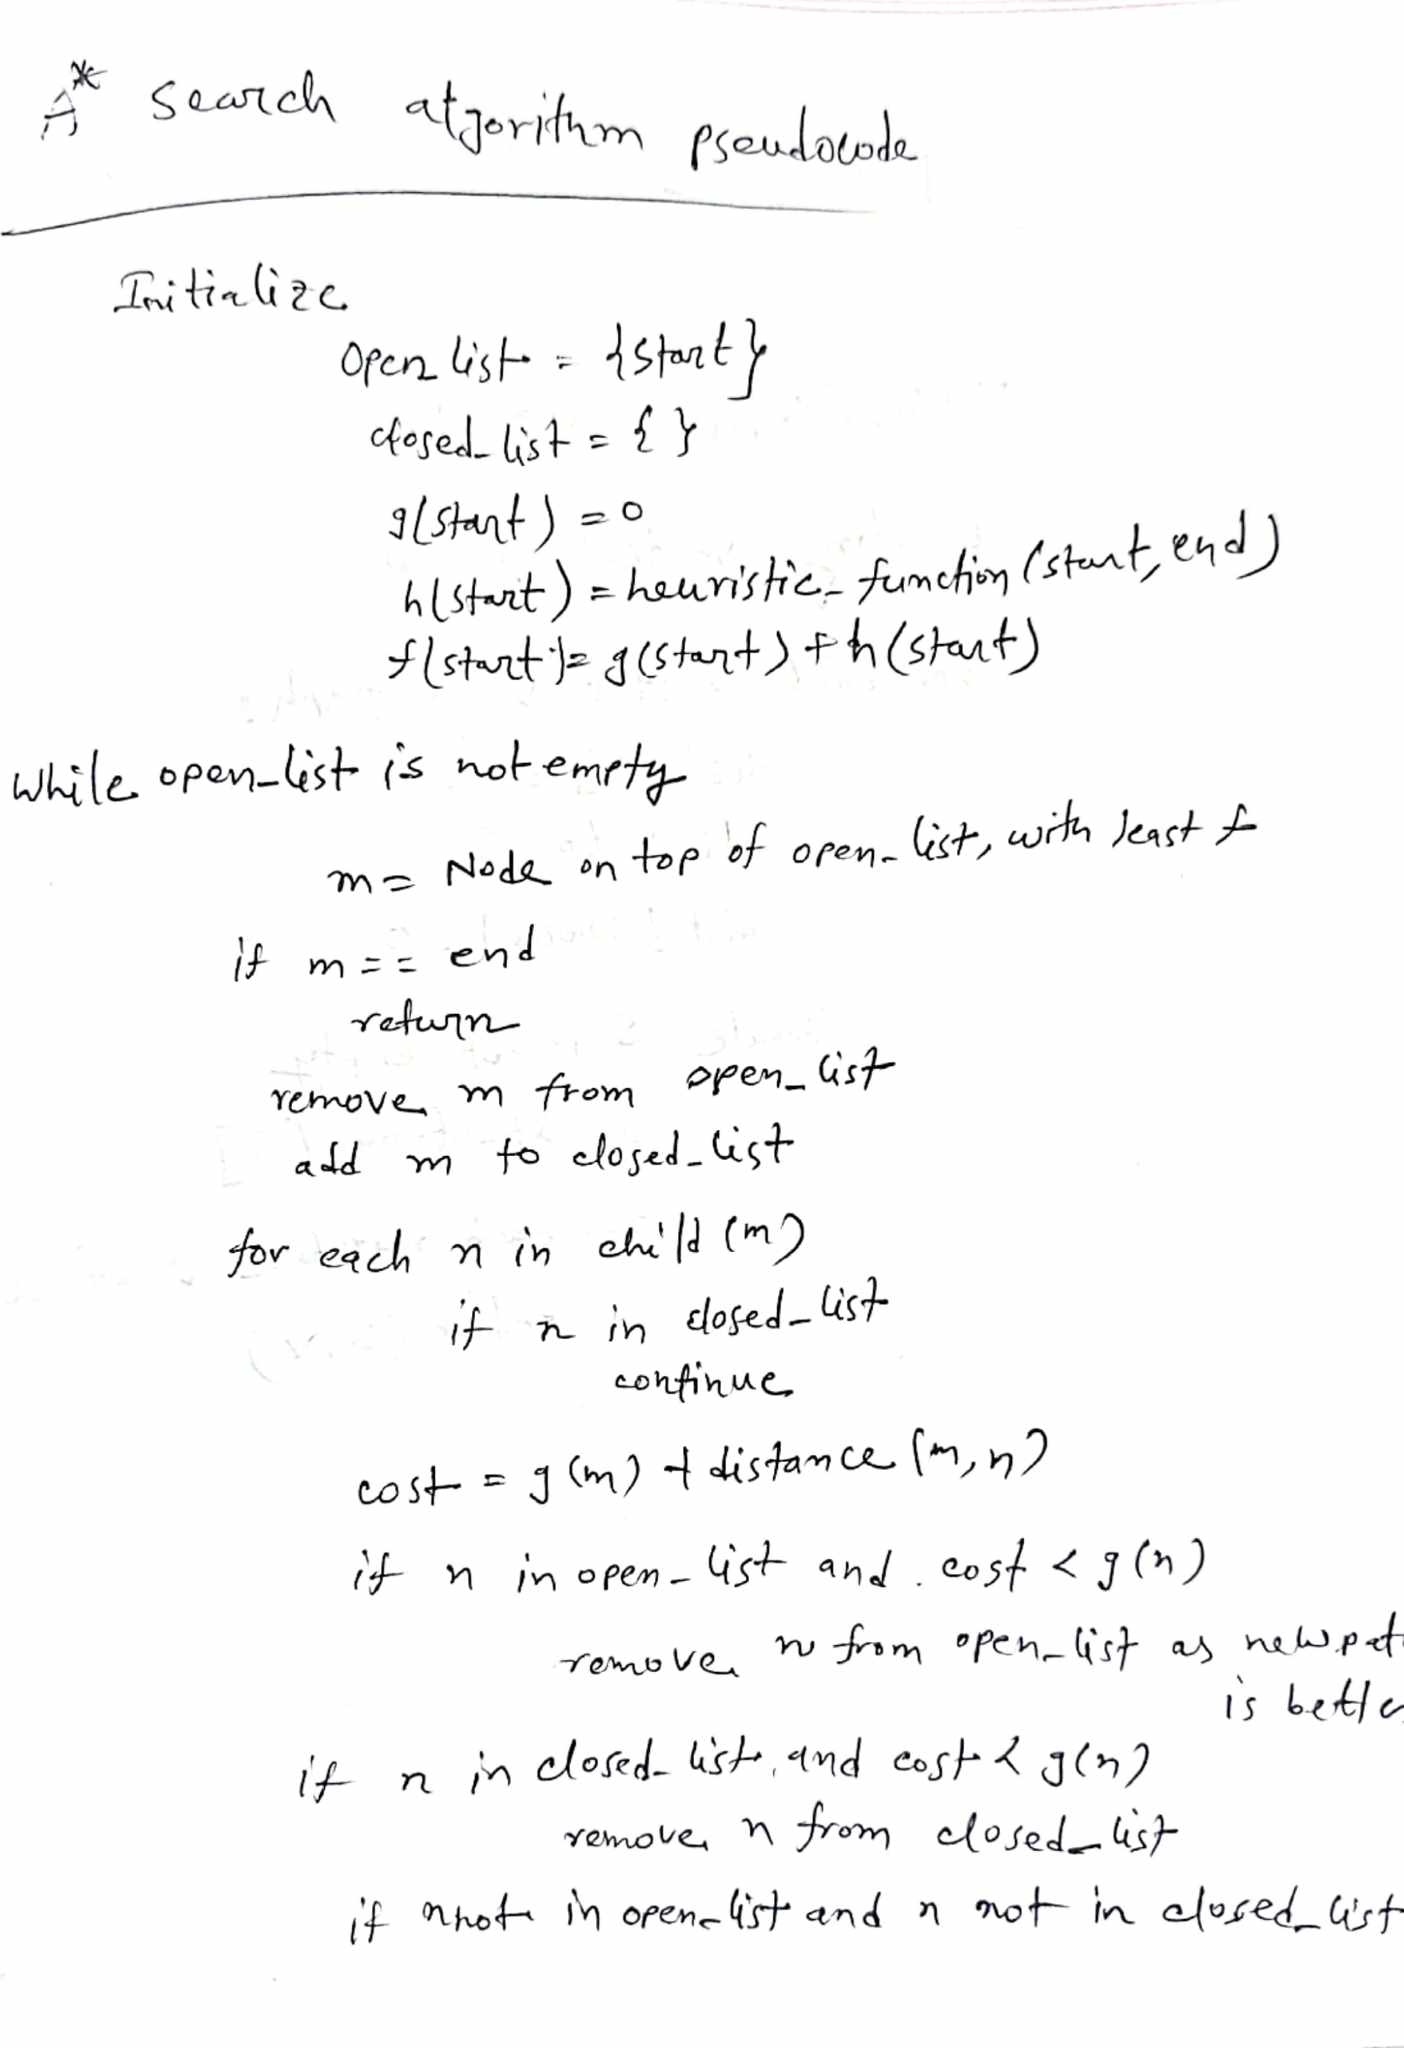 A* search algorithm pseudocode
Initialize
Open list = {start}
closed_list = { }
g(start) = 0
h(start) = heuristic_function (start, end)
f(start) = g(start) + h(start)
while open_list is not empty
m = Node on top of open_list, with least f
if m == end
return
remove m from open_list
add m to closed_list
for each n in child (m)
if n in closed_list
continue
cost = g(m) + distance (m, n)
if n in open_list and cost < g(n)
remove n from open_list as new pat
is bette
if n in closed_list, and cost < g(n)
remove n from closed_list
if n not in open_list and n not in closed_list